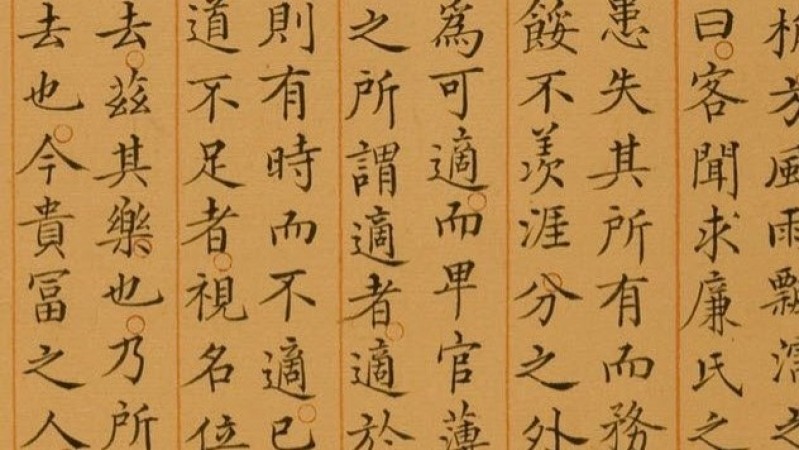 風雨飄之
曰客聞求廉氏之
患失其所有而務
餒不羨涯分之外
爲可適而卑官薄
之所謂適者適於
則有時而不適已
道不足者視名位
去茲其樂也乃所
去也今貴冨之人